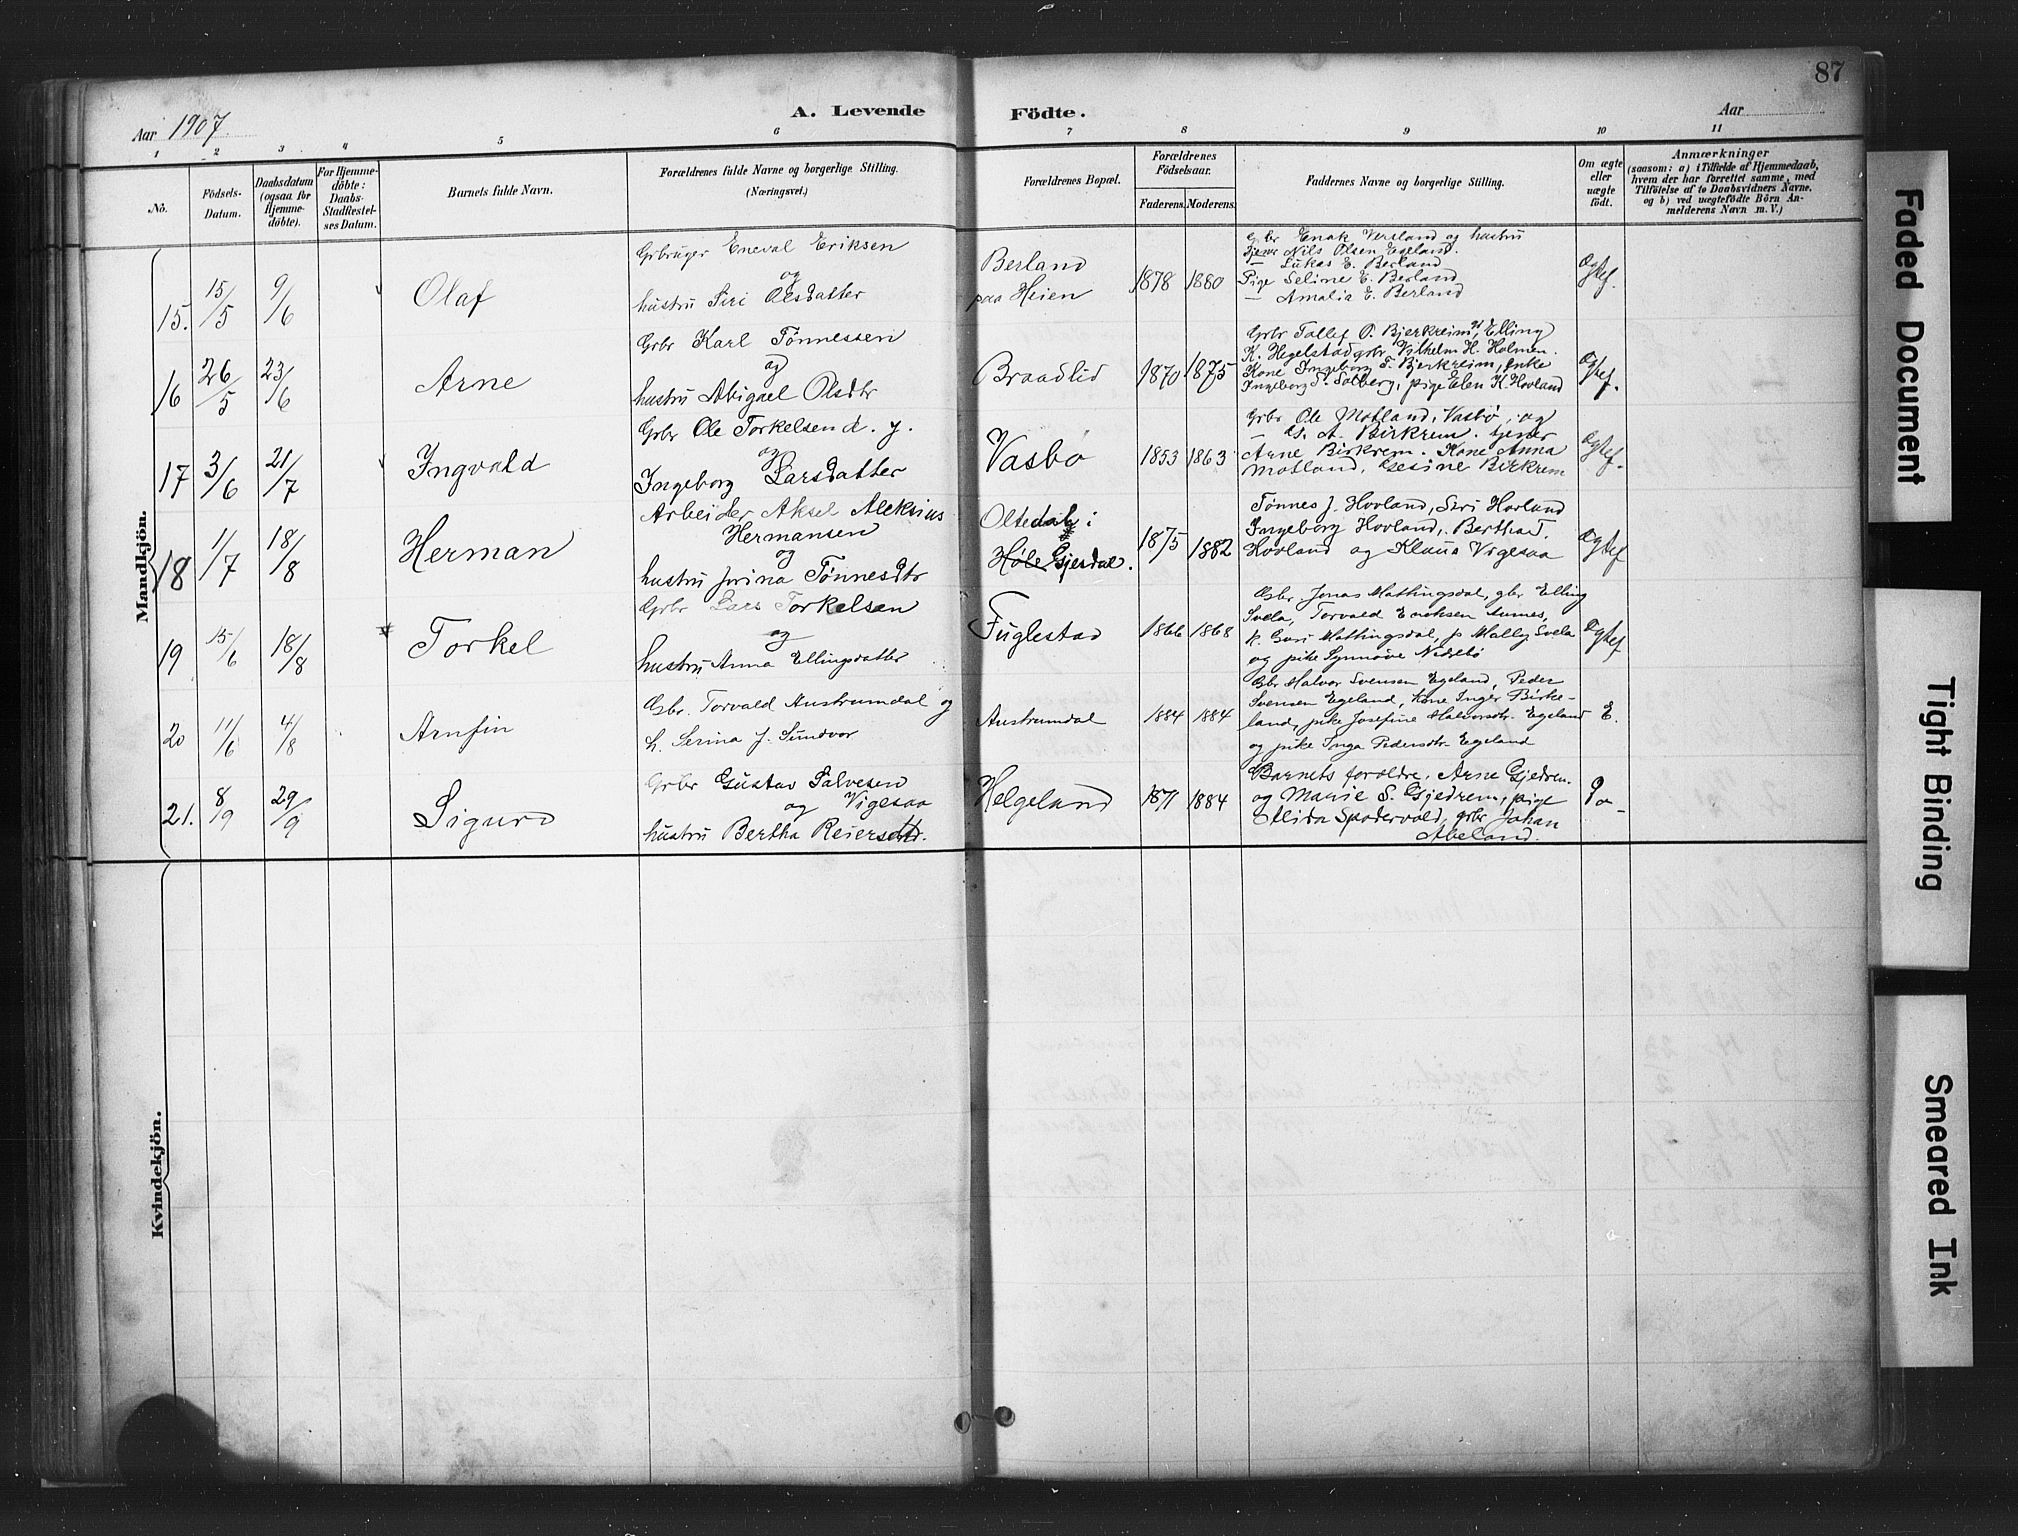 87
Aar 1907.
A. Levende
Födte.
Aar
1 2 3 4 5 6 7 8 9 10 11
No.
Födsels-
Datum.
Daabsdatum
(ogsaa for
Hjemme-
döbte).
For Hjemme-
döbte:
Daabs-
Stadfæstel-
ses Datum.
Barnets fulde Navn.
Forældrenes fulde Navne og borgerlige Stilling.
(Næringsvei.)
Forældrenes Bopæl.
Forældrenes
Födselsaar.
Faderens. Moderens.
Faddernes Navne og borgerlige Stilling.
Om ægte
eller
uægte
födt.
Anmærkninger
(saasom: a) i Tilfælde af Hjemmedaab,
hvem der har forrettet samme, med
Tilföielse af to Daabsvidners Navne,
og b) ved uægtefödte Börn An-
melderens Navn m. V.)
Mandkjön.
15. 15/5 9/6
Olaf
Grbruger Eneval Eriksen
og
hustru Siri Olsdatter
Berland
paa Heien
1878 1880
Grbr Enok Versland og hustru
Tjener Nils Olsen Egeland.
— Lukas E. Berland
Pige Seline E. Berland
— Amalia E. Berland
Ægtef.
16 26/5 23/6
Arne
Grbr Karl Tönnessen
og
hustru Abigael Olsdtr
Braadlid
1870 1875
Grbr Tollef O. Bjerkreim, Elling
K. Hegelstad grbr Vilhelm H. Holmen.
Kone Ingeborg T. Bjerkreim, enke
Ingeborg S. Solberg, pige Elen K. Hovland
Ægtef.
17 3/6 21/7
Ingvald
Grbr Ole Torkelsen d. y.
og
Ingeborg Larsdatter
Vasbø
1853 1863
Grbr Ole Motland, Vasbø, og
— A. Birkrem. tjener
Arne Birkrem. Kone Anna
Motland, Gesine Birkrem
Ægtef.
18 1/7 18/8
Herman
Arbeider Aksel Aleksius
Hermansen
og
hustru Jorina Tønnesdtr
Oltedal i
Høle Gjesdal.
1875 1882
Tønnes J. Hovland, Siri Hovland
Ingeborg Hovland, Bertha T.
Hovland og Klaus Vigesaa
Ægtef
19 15/6 18/8
Torkel
Grbr Lars Torkelsen
og
hustru Anna Ellingsdatter
Fuglestad
1866 1868
Gbr. Jonas Mattingsdal, gbr Elling
Svela, Torvald Eriksen Aunes,
k. Guri Mattingsdal, p Mally Svela
og pike Synnøve Nedrebø
Ægtef
20 11/6 4/8
Arnfin
Gbr. Torvald Austrumdal og
h. Serina J. Sundvor
Austrumdal
1884 1884
Gbr Halvor Svensen Egeland, Peder
Svensen Egeland, Kone Inger Birke-
land, pike Josefine Halvorsdtr. Egeland
og pike Inga Pedersdtr Egeland
E.
21. 8/9 29/9
Sigurd
Grbr Gustav Salvesen
og Vigesaa
hustru Bertha Reiersdtr.
Helgeland
1871 1884
Barnets forældre, Arne Gjedrem
og Marie S. Gjedrem, pige
Alida Spødervold, grbr Johan
Abeland.
Kvindekjön.
Faded Document
Tight Binding
Smeared Ink